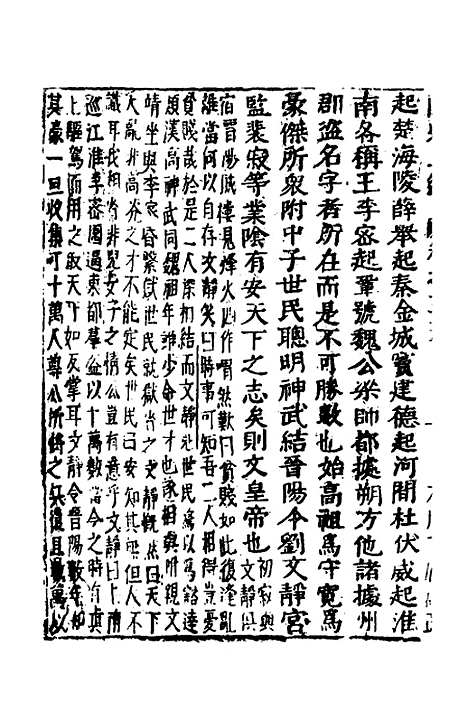 起楚海陵薛舉起秦金城竇建德起河間杜伏威起淮
南各稱王李密起鞏號魏公梁師都據朔方他諸據州
郡盜名字者所在而是不可勝數也始高祖爲守寬爲
豪傑所衆附中子世民聰明神武結晉陽令劉文靜宮
監裴寂等業陰有安天下之志矣則文皇帝也
初寂與文靜俱
宿晉陽城樓見烽火四作喟然歎曰貧賤如此復逢亂
離當何以自存文靜笑曰時事可知吾二人相得豈憂
貧賤哉於是二人深相結而文靜見世民異以爲豁達
類漢高神武同魏祖年雖少命世才也遂相與所親文
靖坐與李家昏繫獄世民就獄省之文靜欲然曰天下
大亂非高光之才不能定矣世民曰安知其無人但人不
識耳我相省非兒女子之情公豈有意乎文靜曰上南
巡江淮李密圍逼東都羣盜以十萬數當今之時有真
主驅駕而用之取天下如反掌耳文靜令晉陽數年知
其豪一旦收集可十萬人尊公所將之兵復且數萬以